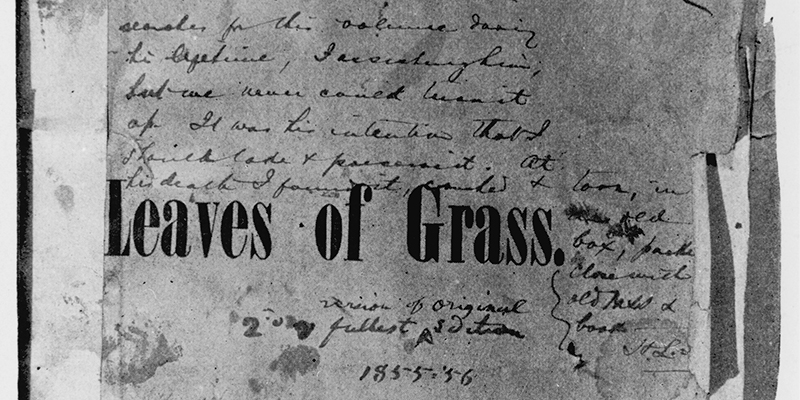 searches for this volume during
his lifetime, I assisting him,
but we never could hunt it
up. It was his intention that I
should take & preserve it. At
his death I found it, & torn, in
Leaves of Grass.
old
box,
close with
old MSS &
books
version of original
2nd fullest Edition
1855-'56